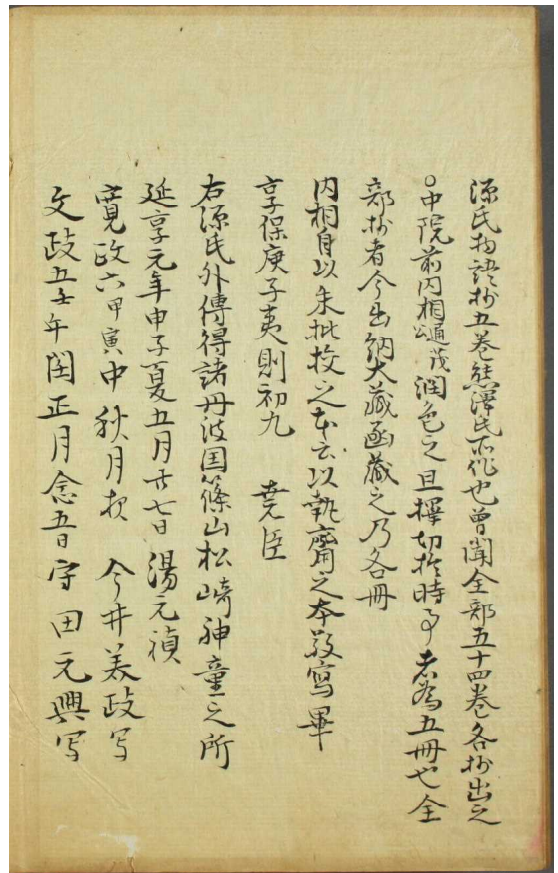 源氏物語抄五巻熊澤氏所作也曾聞全部五十四巻各抄出之
○中院前内相公通茂潤色之且擇切於時事者為五冊也全
部抄者今出納大蔵函蔵之乃各冊
内相自以朱批挍之本云以執齋之本敬寫畢
享保庚子夷則初九 堯臣
右源氏外傳得諸丹波国篠山松崎神童之所
延享元年甲子夏五月廿七日 湯元禎
寛政六甲寅中秋月 今井美政写
文政五壬午閏正月念五日守田元興写